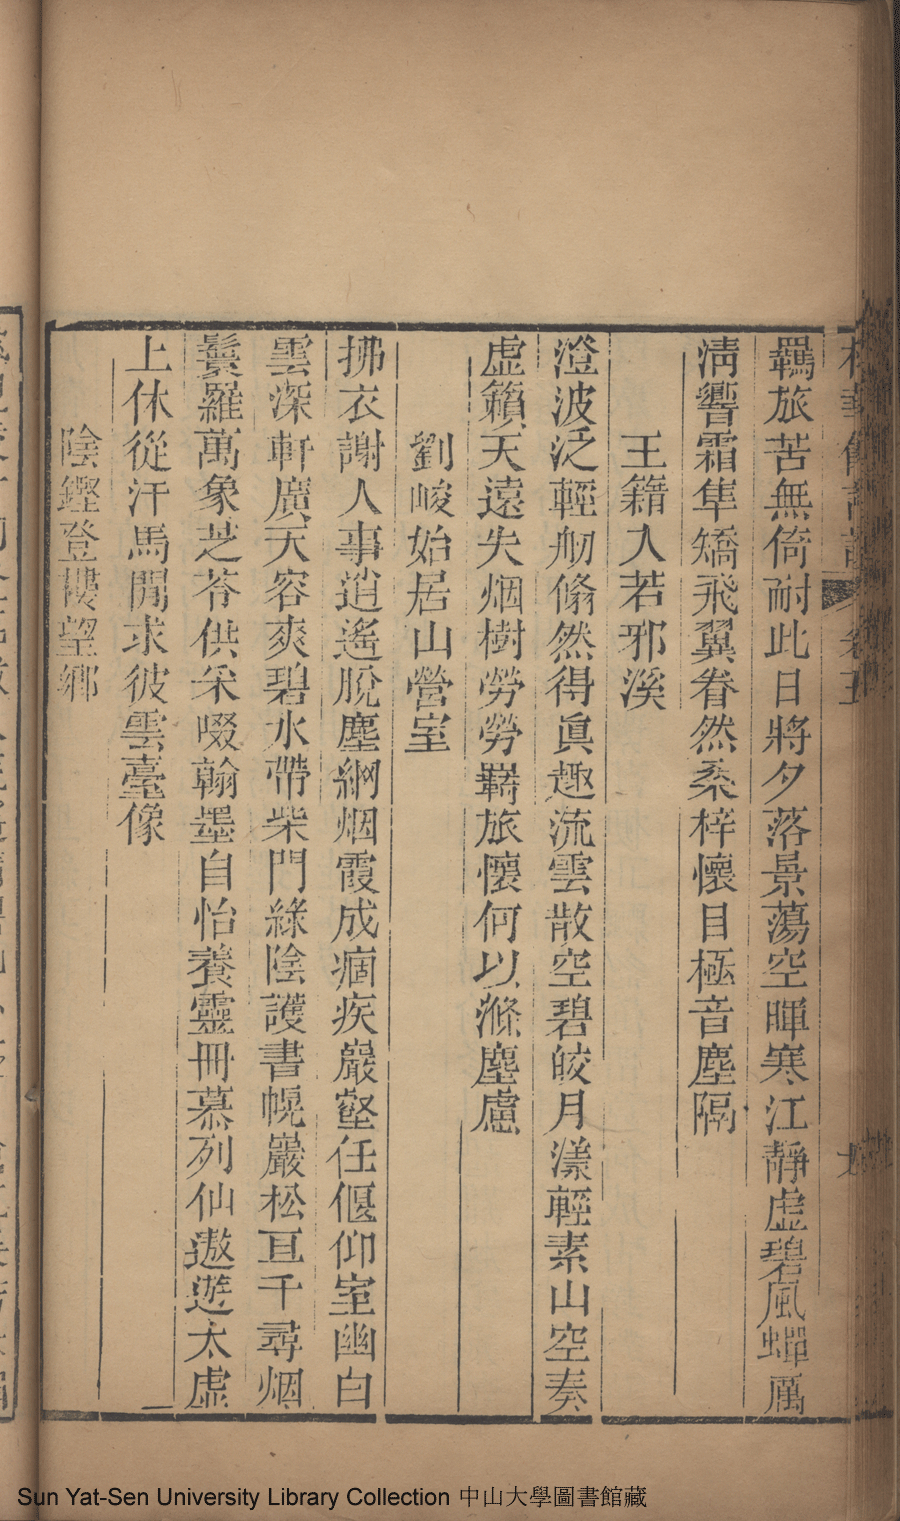 羈旅苦無倚耐此日將夕落景蕩空暉寒江靜虛碧風蟬厲
淸響霜隼矯飛翼眷然桑梓懷目極音塵隔
王籍入若邪溪
澄波泛輕舠翛然得眞趣流雲散空碧皎月漾輕素山空奏
虛籟天遠失烟樹勞勞羇旅懷何以滌塵慮
劉峻始居山營室
拂衣謝人事逍遙脫塵網烟霞成痼疾巖壑任偃仰室幽白
雲深軒廣天容爽碧水帶柴門綠陰護書幌巖松亙千尋烟
鬟羅萬象芝苓供采啜翰墨自怡養靈冊慕列仙遨遊太虛
上休從汗馬閒求彼雲臺像
陰鏗登樓望鄉
Sun Yat-Sen University Library Collection 中山大學圖書館藏